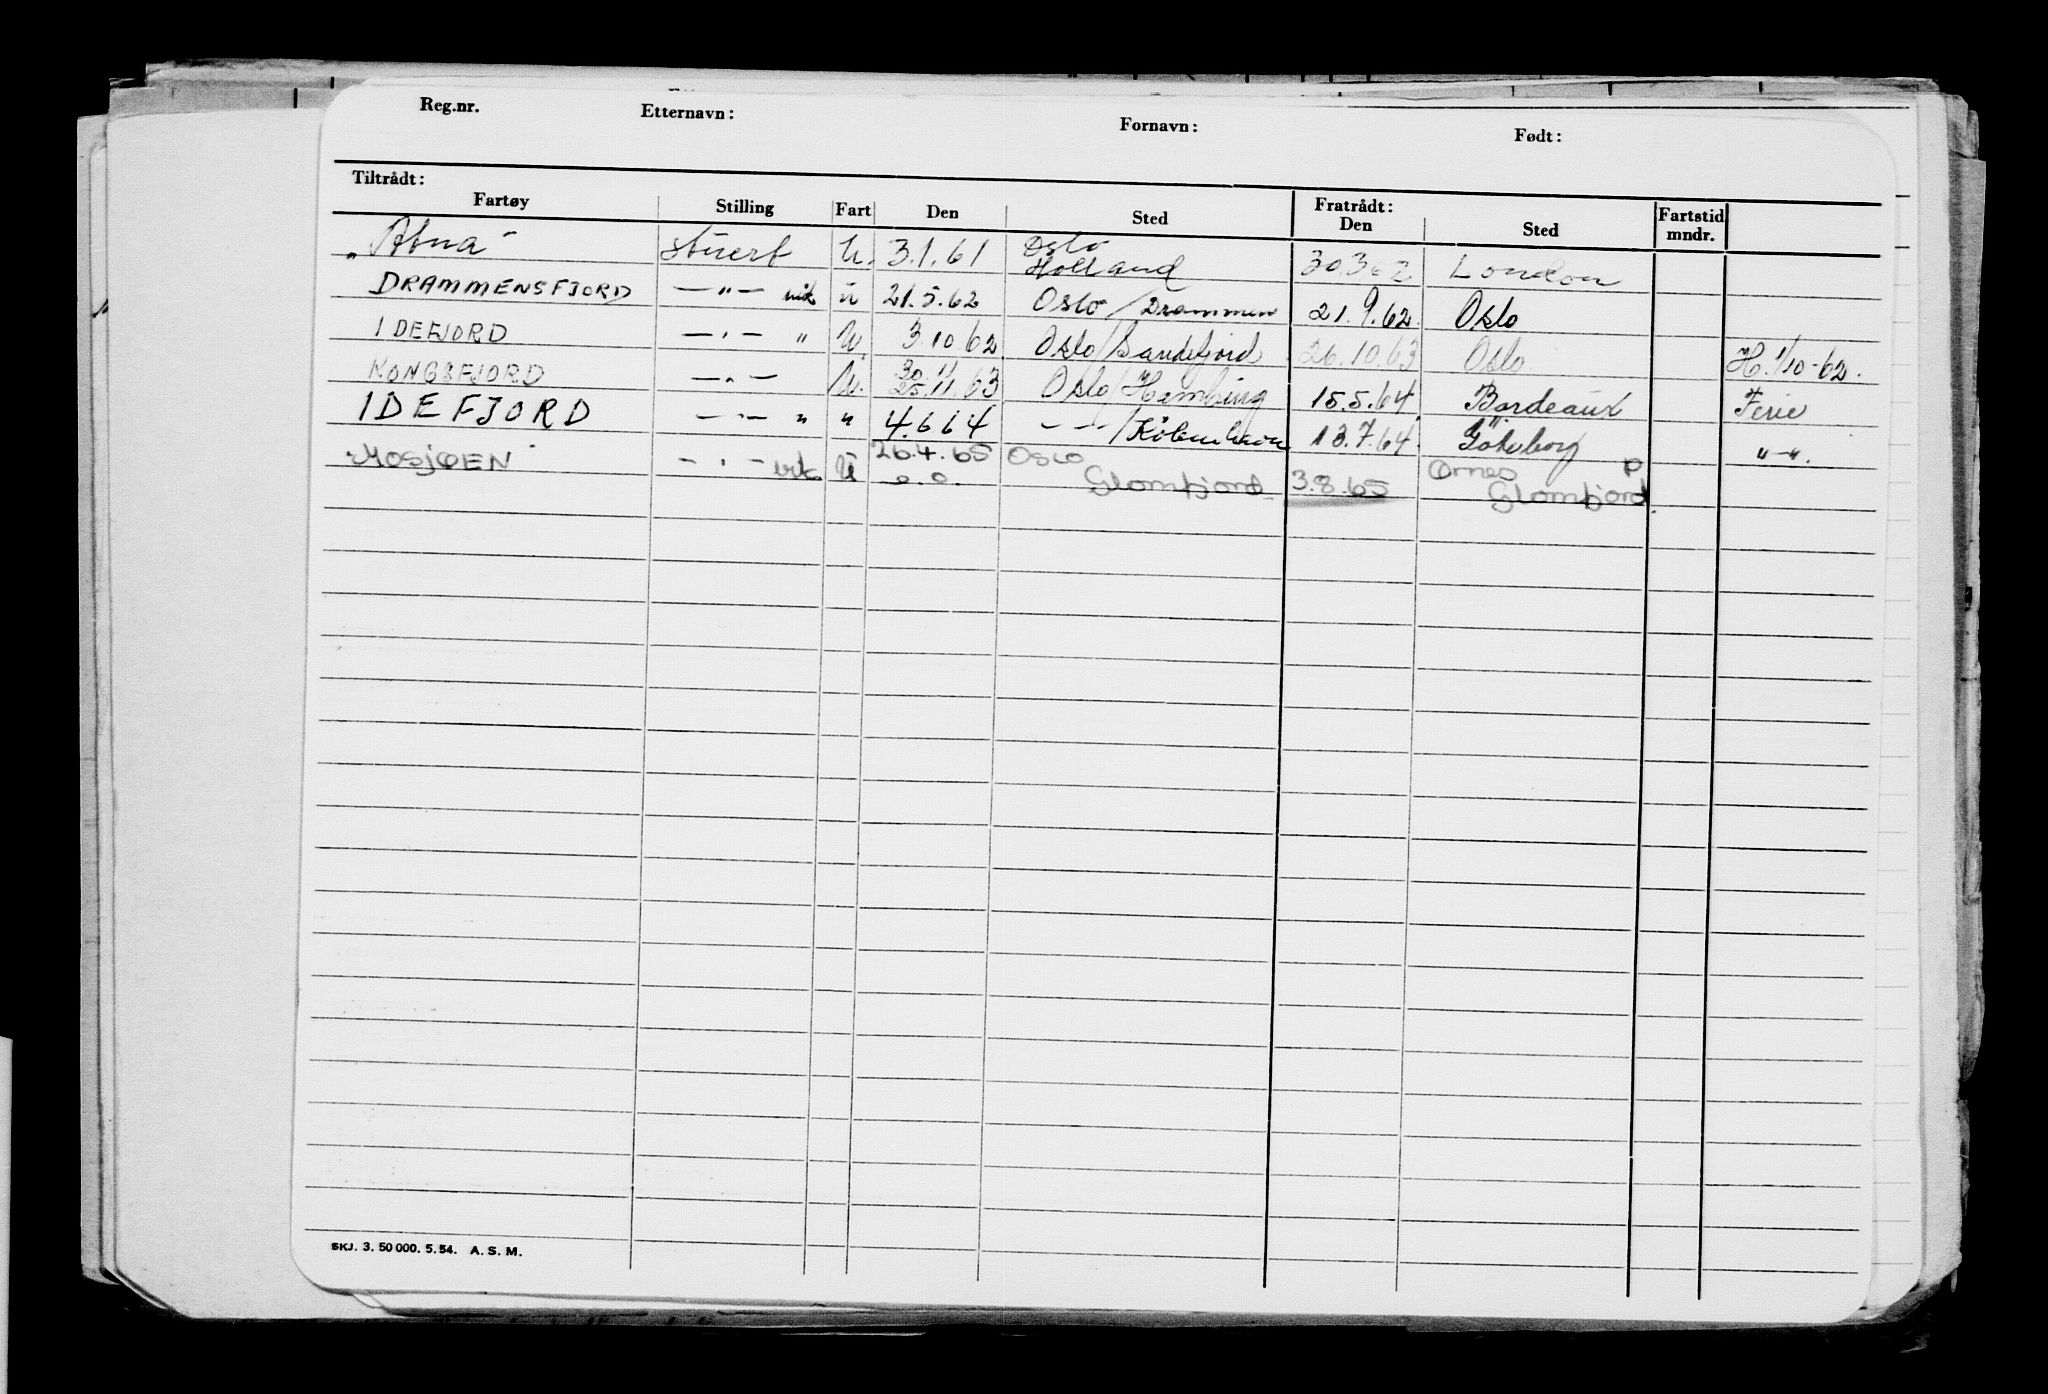 Reg.nr. Etternavn: Fornavn: Født:
Tiltrådt: Fratrådt:
Fartøy Stilling Fart Den Sted Den Sted Fartstid mndr.
"Atna" stuert U. 3.1.61 Oslo Holland 30.3.62 London
DRAMMENSFJORD —"— vik U 21.5.62 Oslo/Drammen 21.9.62 Oslo
IDEFJORD —"— " U. 3.10.62 Oslo/Sandefjord 26.10.63 Oslo H. 1/10-62.
KONGSFJORD —"— U. 30.11 25.11.63 Oslo/Hamburg 15.5.64 Bordeaux Ferie
IDEFJORD —"— " " 4.6.64 — " —/København 13.7.64 Göteborg "—".
MOSJØEN —"— vik U 26.4.65 Oslo Ørnes P
o.o. Glomfjord 3.8.65 Glomfjord.
SKJ. 3. 50 000. 5. 54. A. S. M.